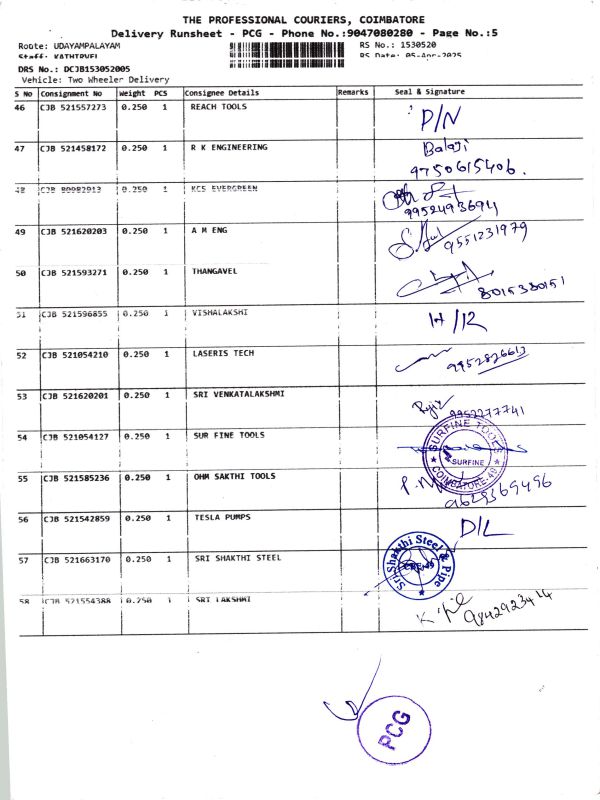 THE PROFESSIONAL COURIERS, COIMBATORE
Delivery Runsheet - PCG - Phone No.:9047080280 - Page No.:5
Route: UDAYAMPALAYAM RS No.: 1530520
Staff: KATHRVEL RS Date: 05-Apr-2025
DRS No.: DCJB153052005
Vehicle: Two Wheeler Delivery
S No Consignment No Weight PCS Consignee Details Remarks Seal & Signature
46 CJB 521557273 0.250 1 REACH TOOLS P/N
47 CJB 521458172 0.250 1 R K ENGINEERING Balaji
9750615406.
48 CJB 80982913 0.250 1 KCS EVERGREEN
9952493694
49 CJB 521620203 0.250 1 A M ENG 9551231979
50 CJB 521593271 0.250 1 THANGAVEL
8015380151
51 CJB 521596855 0.250 1 VISHALAKSHI H/12
52 CJB 521054210 0.250 1 LASERIS TECH 9952826613
53 CJB 521620201 0.250 1 SRI VENKATALAKSHMI
9952277741
54 CJB 521054127 0.250 1 SUR FINE TOOLS SURFINE TOOLS
SURFINE
COIMBATORE-49
55 CJB 521585236 0.250 1 OHM SAKTHI TOOLS
9629369496
56 CJB 521542859 0.250 1 TESLA PUMPS D/L
57 CJB 521663170 0.250 1 SRI SHAKTHI STEEL Sri Shakthi Steel & Pipe
CBE-49
58 CJB 521554388 0.250 1 SRI LAKSHMI
9842923414
PCG